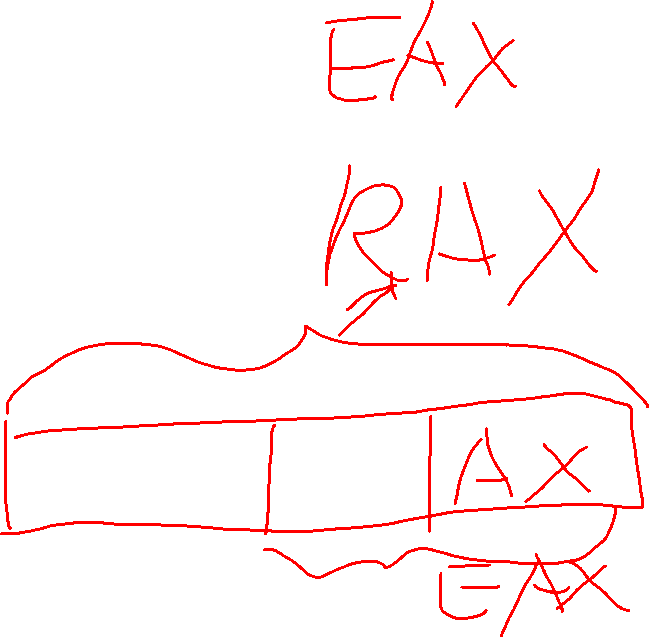 EAX
RAX
AX
EAX